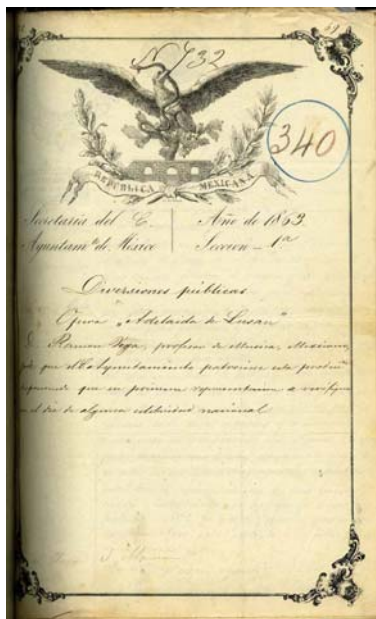 N 732
340
REPUBLICA MEXICANA
Secretaria del C. Año de 1863.
Ayuntamto de México Seccion - 1a
Diversiones públicas
Opera "Adelaida de Lusan"
D. Roman Vega, profesor de Musica, Mexicano,
pide que el C. Ayuntamiento patrocine esta
disponiendo que su primera representacion se verifique
en el dia de alguna celebridad nacional